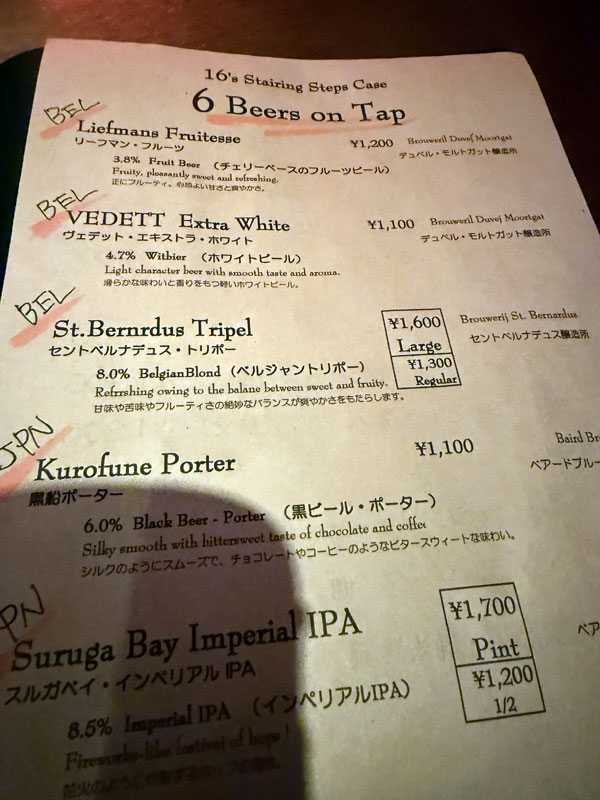 16's Stairing Steps Case
6 Beers on Tap
BEL
Liefmans Fruitesse
リーフマン・フルーツ
¥1,200
Brouweril Duvej Moortgat
デュベル・モルトガット醸造所
3.8% Fruit Beer （チェリーベースのフルーツビール）
Fruity, pleasantly sweet and refreshing.
正にフルーティ。心地よい甘さと爽やかさ。
BEL
VEDETT Extra White
ヴェデット・エキストラ・ホワイト
¥1,100
Brouweril Duvej Moortgat
デュベル・モルトガット醸造所
4.7% Witbier （ホワイトビール）
Light character beer with smooth taste and aroma.
滑らかな味わいと香りをもつ軽いホワイトビール。
BEL
St.Bernrdus Tripel
セントベルナデュス・トリポー
¥1,600
Large
¥1,300
Regular
Brouwerij St. Bernardus
セントベルナデュス醸造所
8.0% BelgianBlond （ベルジャントリポー）
Refrrshing owing to the balane between sweet and fruity.
甘味や苦味やフルーティさの絶妙なバランスが爽やかさをもたらします。
JPN
Kurofune Porter
黒船ポーター
¥1,100
Baird Br
ベアードブルー
6.0% Black Beer - Porter （黒ビール・ポーター）
Silky smooth with bittersweet taste of chocolate and coffee
シルクのようにスムーズで、チョコレートやコーヒーのようなビタースウィートな味わい。
PN
Suruga Bay Imperial IPA
スルガベイ・インペリアル IPA
¥1,700
Pint
¥1,200
1/2
ベア
8.5% Imperial IPA （インペリアルIPA）
Fireworks-like festival of hops !
花火のように